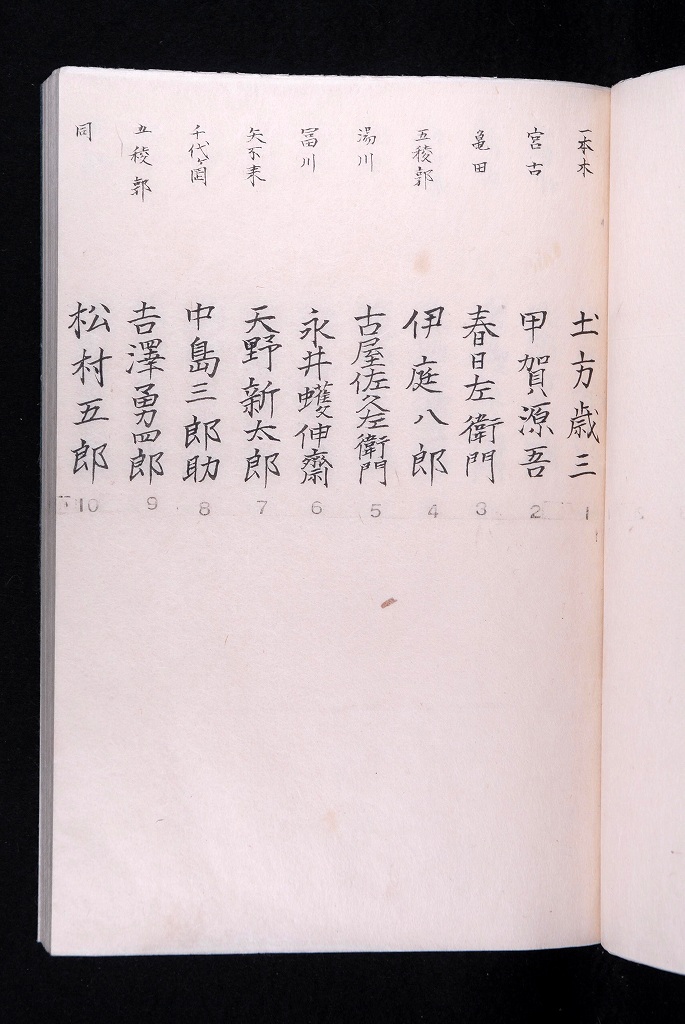 一本木 土方歳三 1
宮古 甲賀源吾 2
亀田 春日左衛門 3
五稜郭 伊庭八郎 4
湯川 古屋佐久左衛門 5
冨川 永井蠖伸齋 6
矢不来 天野新太郎 7
千代ヶ岡 中島三郎助 8
五稜郭 吉澤勇四郎 9
同 松村五郎 10